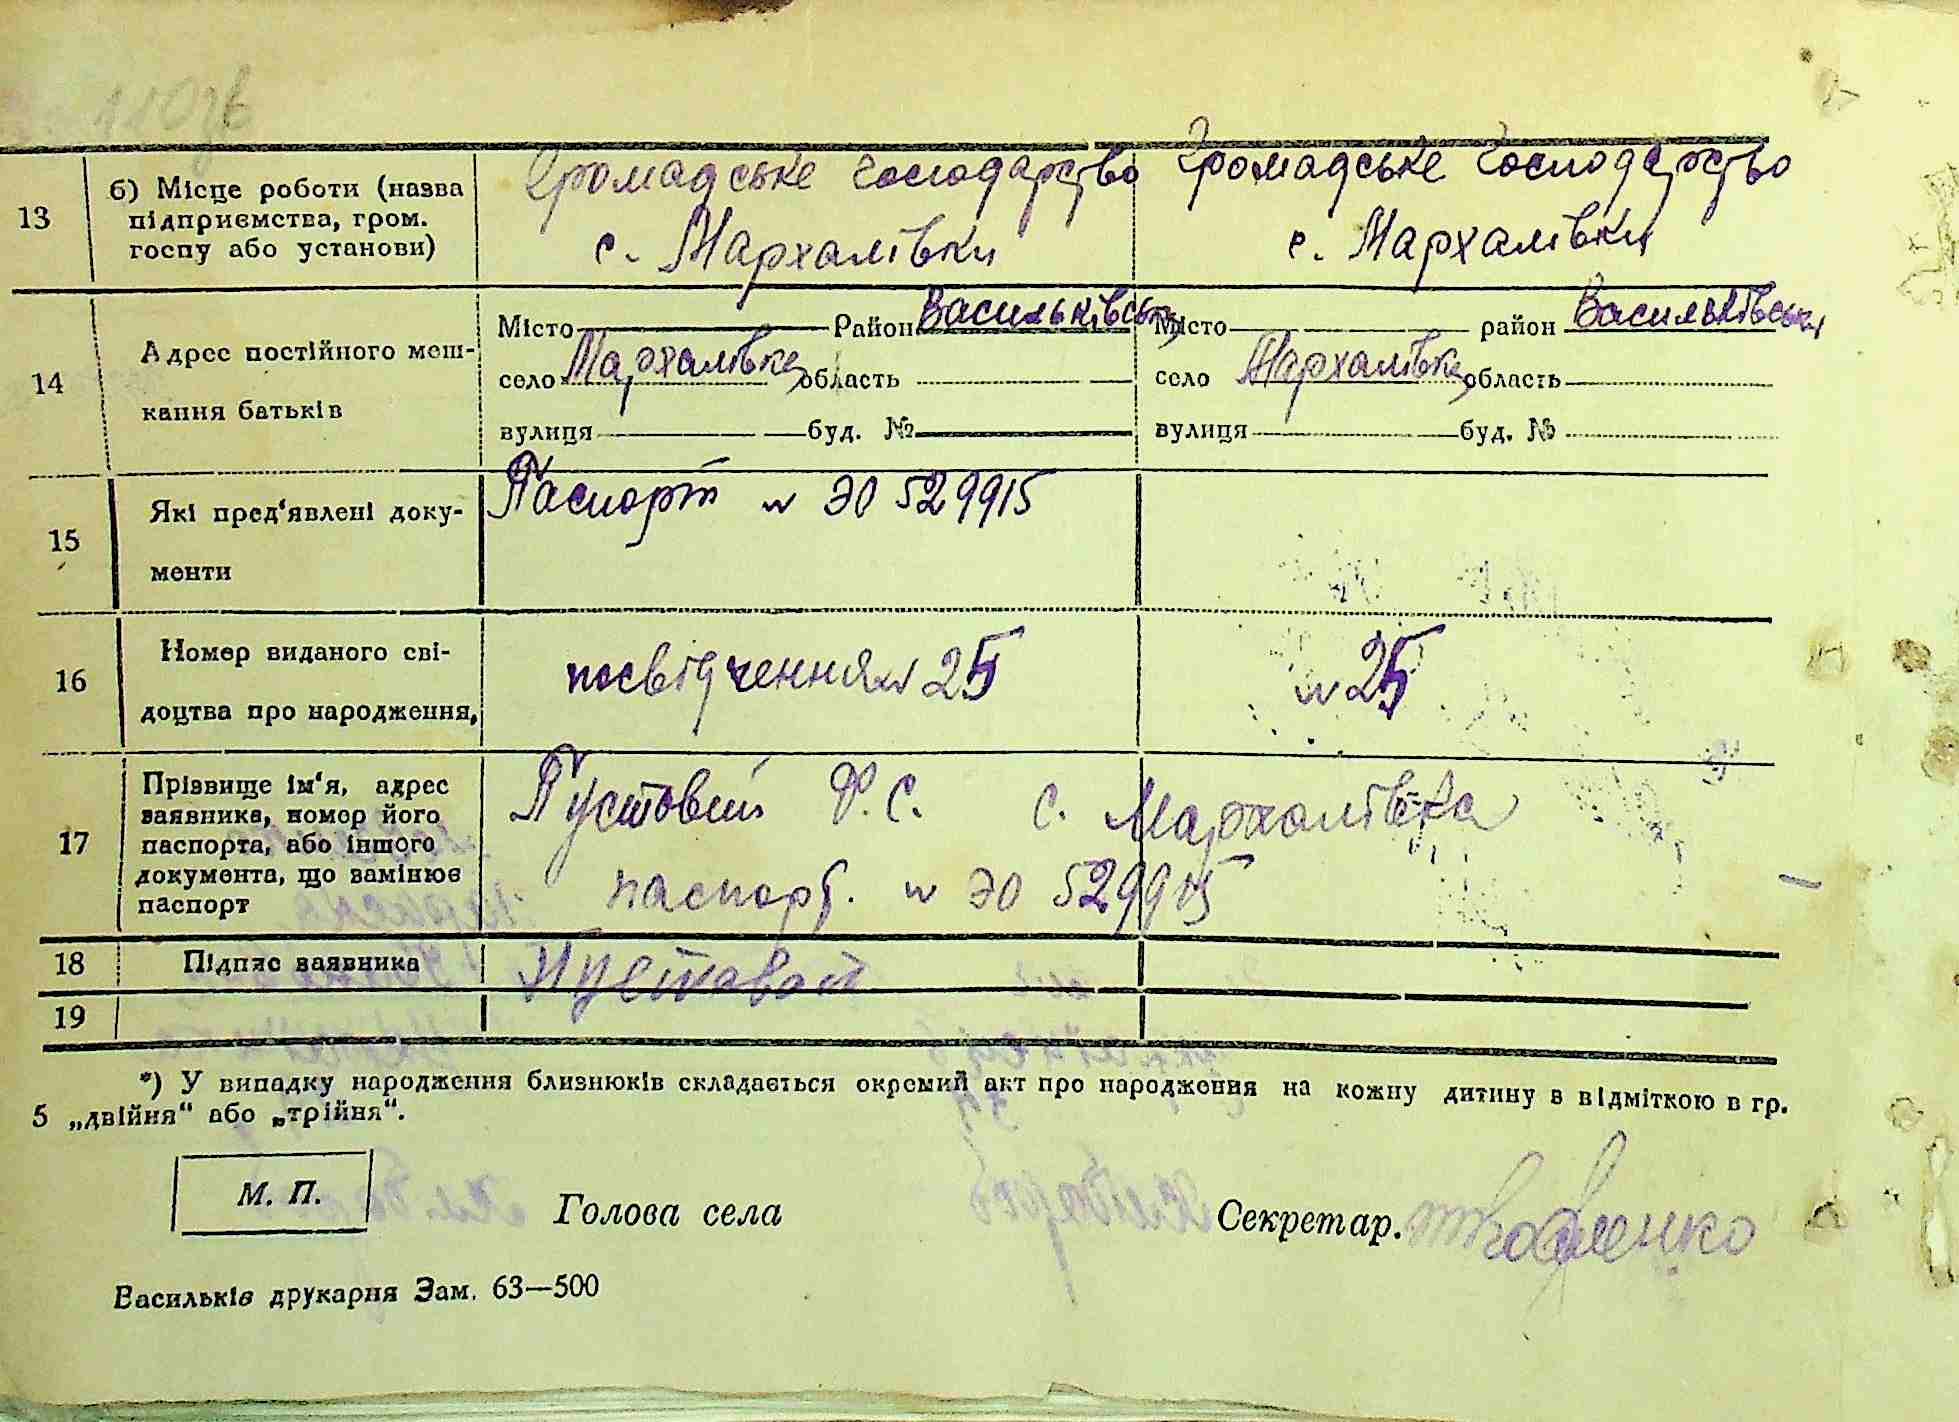 110 зв
13 б) Місце роботи (назва підприємства, гром. госпу або установи)
Громадське господарство
с. Мархалівки
Громадське господарство
с. Мархалівки
14 Адрес постійного меш-
кання батьків
Місто Район Васильківськ
село Мархалівка область
вулиця буд. №
Місто район Васильківськ
село Мархалівка область
вулиця буд. №
15 Які пред'явлені доку-
менти
Паспорт № ЭО 529915
16 Номер виданого сві-
доцтва про народження,
посвідчення № 25
№ 25
17 Прізвище ім'я, адрес
заявника, номер його
паспорта, або іншого
документа, що замінює
паспорт
Пустовий Ф. С. с. Мархалівка
паспорт. № ЭО 529915
18 Підпис заявника
Пустовой
19
*) У випадку народження близнюків складається окремий акт про народження на кожну дитину з відміткою в гр.
5 „двійня“ або „трійня“.
М. П.
Голова села
Секретар.
Васильків друкарня Зам. 63—500